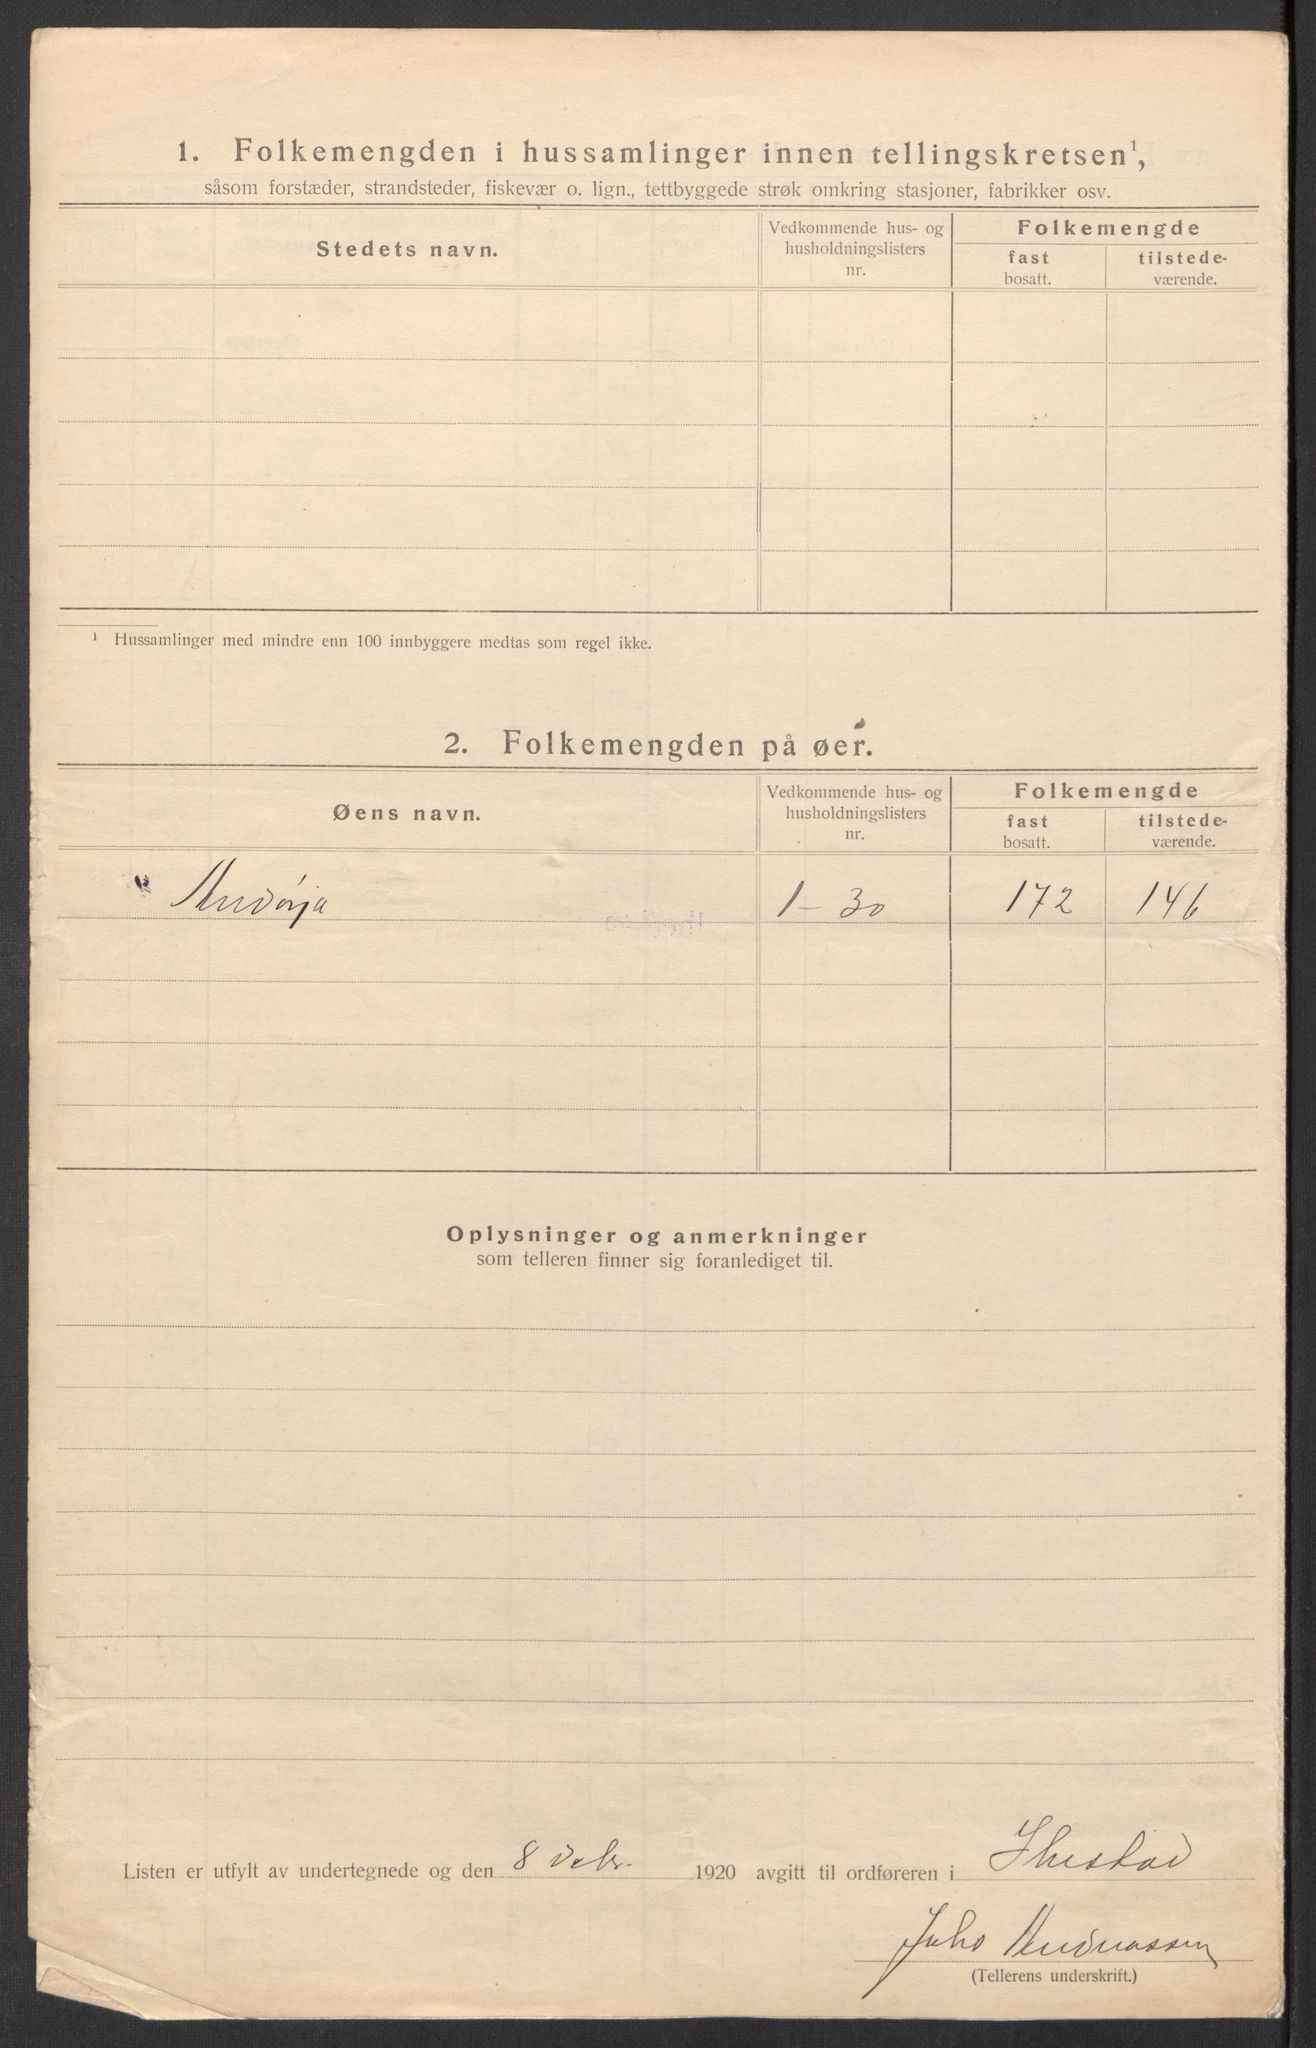 1. Folkemengden i hussamlinger innen tellingskretsen¹,
såsom forstæder, strandsteder, fiskevær o. lign., tettbyggede strøk omkring stasjoner, fabrikker osv.
Stedets navn.
Vedkommende hus- og
husholdningslisters
nr.
Folkemengde
fast
bosatt.
tilstede-
værende.
¹ Hussamlinger med mindre enn 100 innbyggere medtas som regel ikke.
2. Folkemengden på øer.
Øens navn.
Vedkommende hus- og
husholdningslisters
nr.
Folkemengde
fast
bosatt.
tilstede-
værende.
Andørja 1-30 172 146
Oplysninger og anmerkninger
som telleren finner sig foranlediget til.
Listen er utfylt av undertegnede og den 8 Debr. 1920 avgitt til ordføreren i Ibestad
Andreassen
(Tellerens underskrift.)